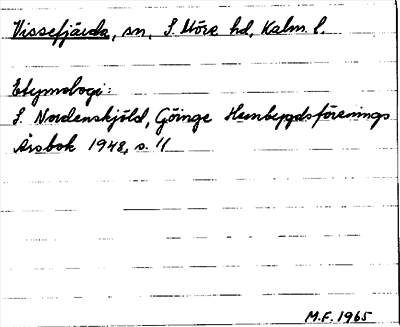 Vissefjärda, sn, S. Möre hd, Kalm. l.
Etymologi:
S. Nordenskjöld, Göinge Hembygdsförenings
Årsbok 1948, s. 11
M.F. 1965